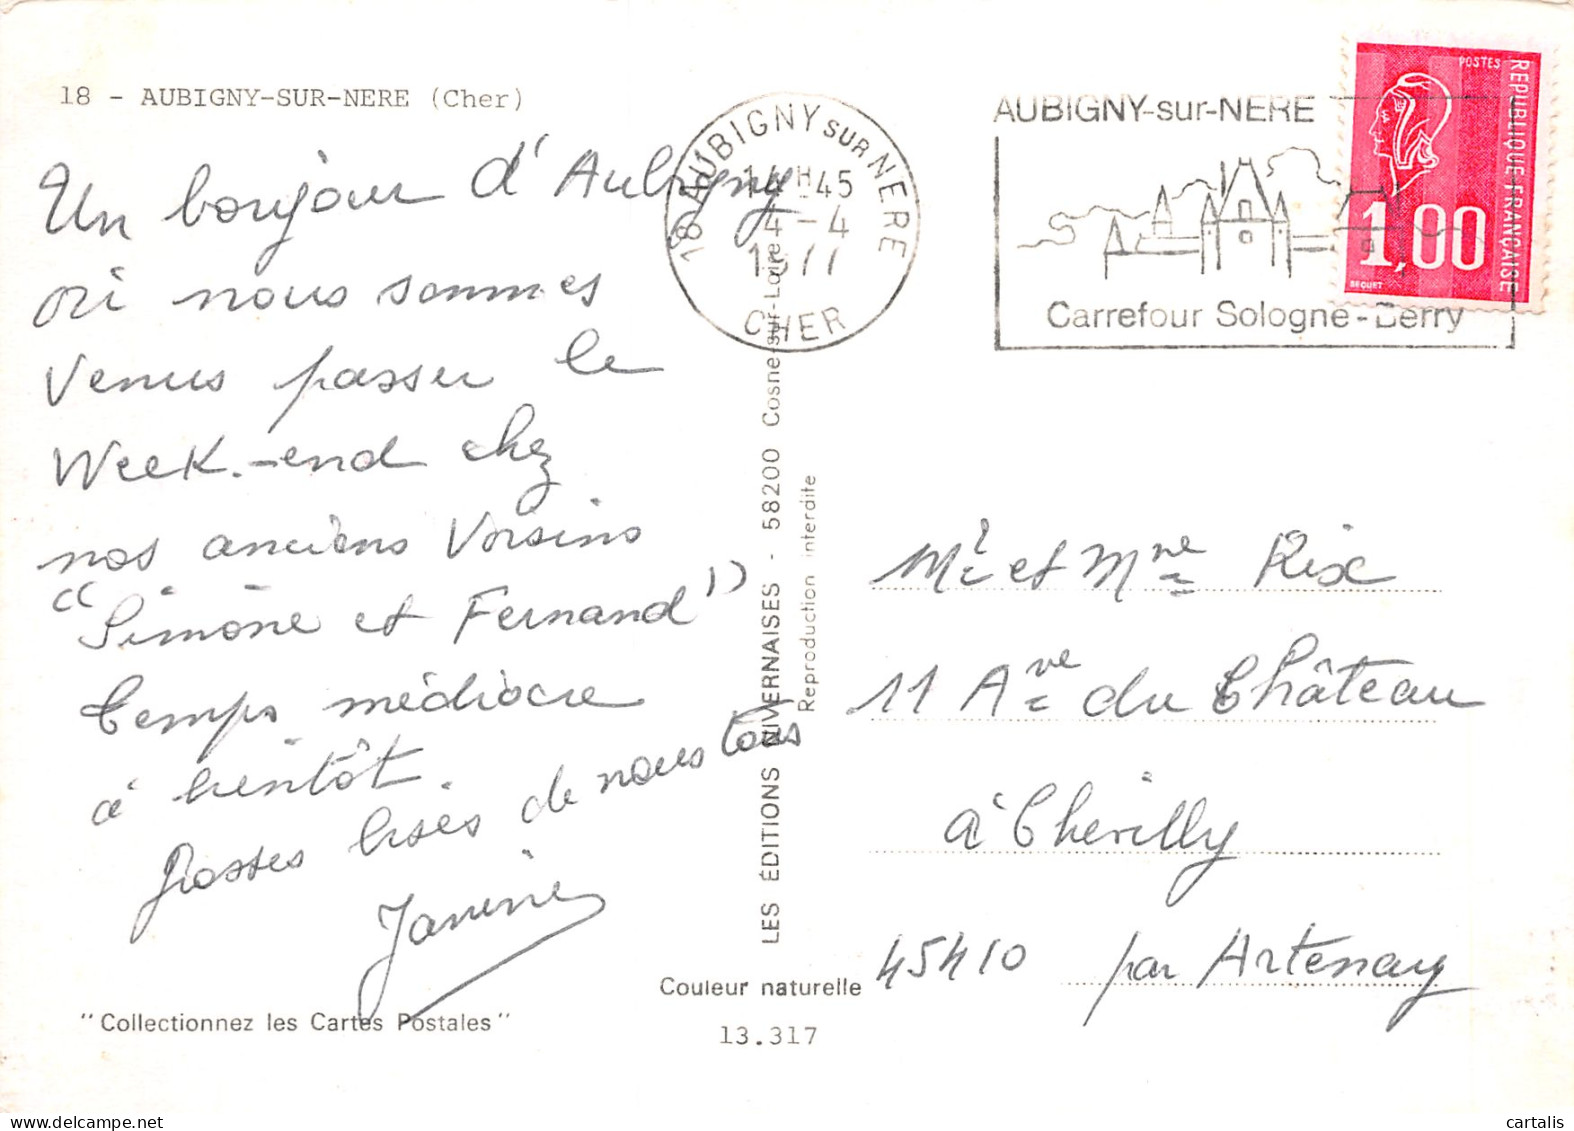 18 - AUBIGNY-SUR-NERE (Cher)
Un bonjour d'Aubigny
où nous sommes
venus passer le
Week-end chez
nos anciens Voisins
"Simone et Fernand")
temps médiocre
à bientôt.
Grosses bises de nous tous
Janine
"Collectionnez les Cartes Postales"
LES ÉDITIONS NIVERNAISES - 58200 Cosne-sur-Loire
Reproduction interdite
Couleur naturelle
13.317
18 AUBIGNY SUR NERE
14H45
4-4
1977
CHER
AUBIGNY-sur-NERE
Carrefour Sologne-Berry
POSTES
REPUBLIQUE FRANÇAISE
1,00
BEQUET
Mr et Mme Rix
11 Ave du Château
à Chevilly
45410 par Artenay
cartalis